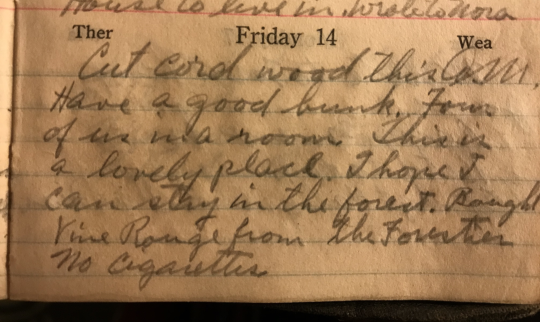 House to live in. Wrote to Nora
Ther Friday 14 Wea
Cut cord wood this A.M.
Have a good bunk. Four
of us in a room This is
a lovely place. I hope I
can stay in the forest. Bought
Vine Rouge from the Forestier
No cigarettes